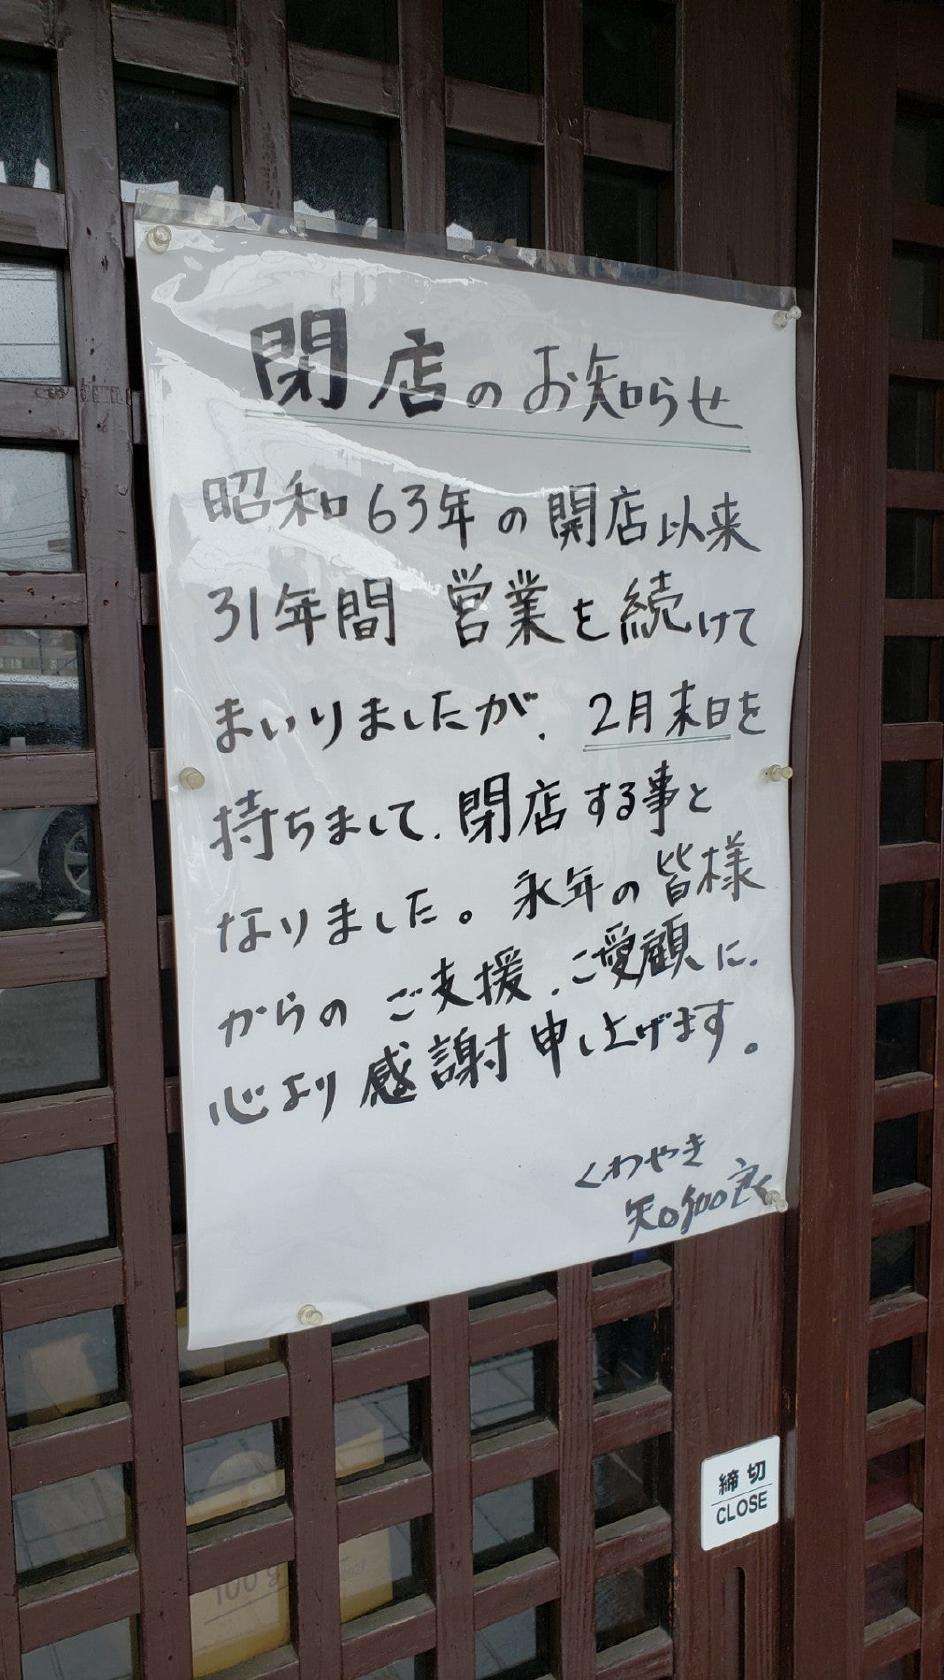 閉店のお知らせ
昭和63年の開店以来
31年間 営業を続けて
まいりましたが、2月末日を
持ちまして、閉店する事と
なりました。永年の皆様
からの ご支援、ご愛顧に、
心より感謝申し上げます。
くわやき
知加良
締切
CLOSE
100g